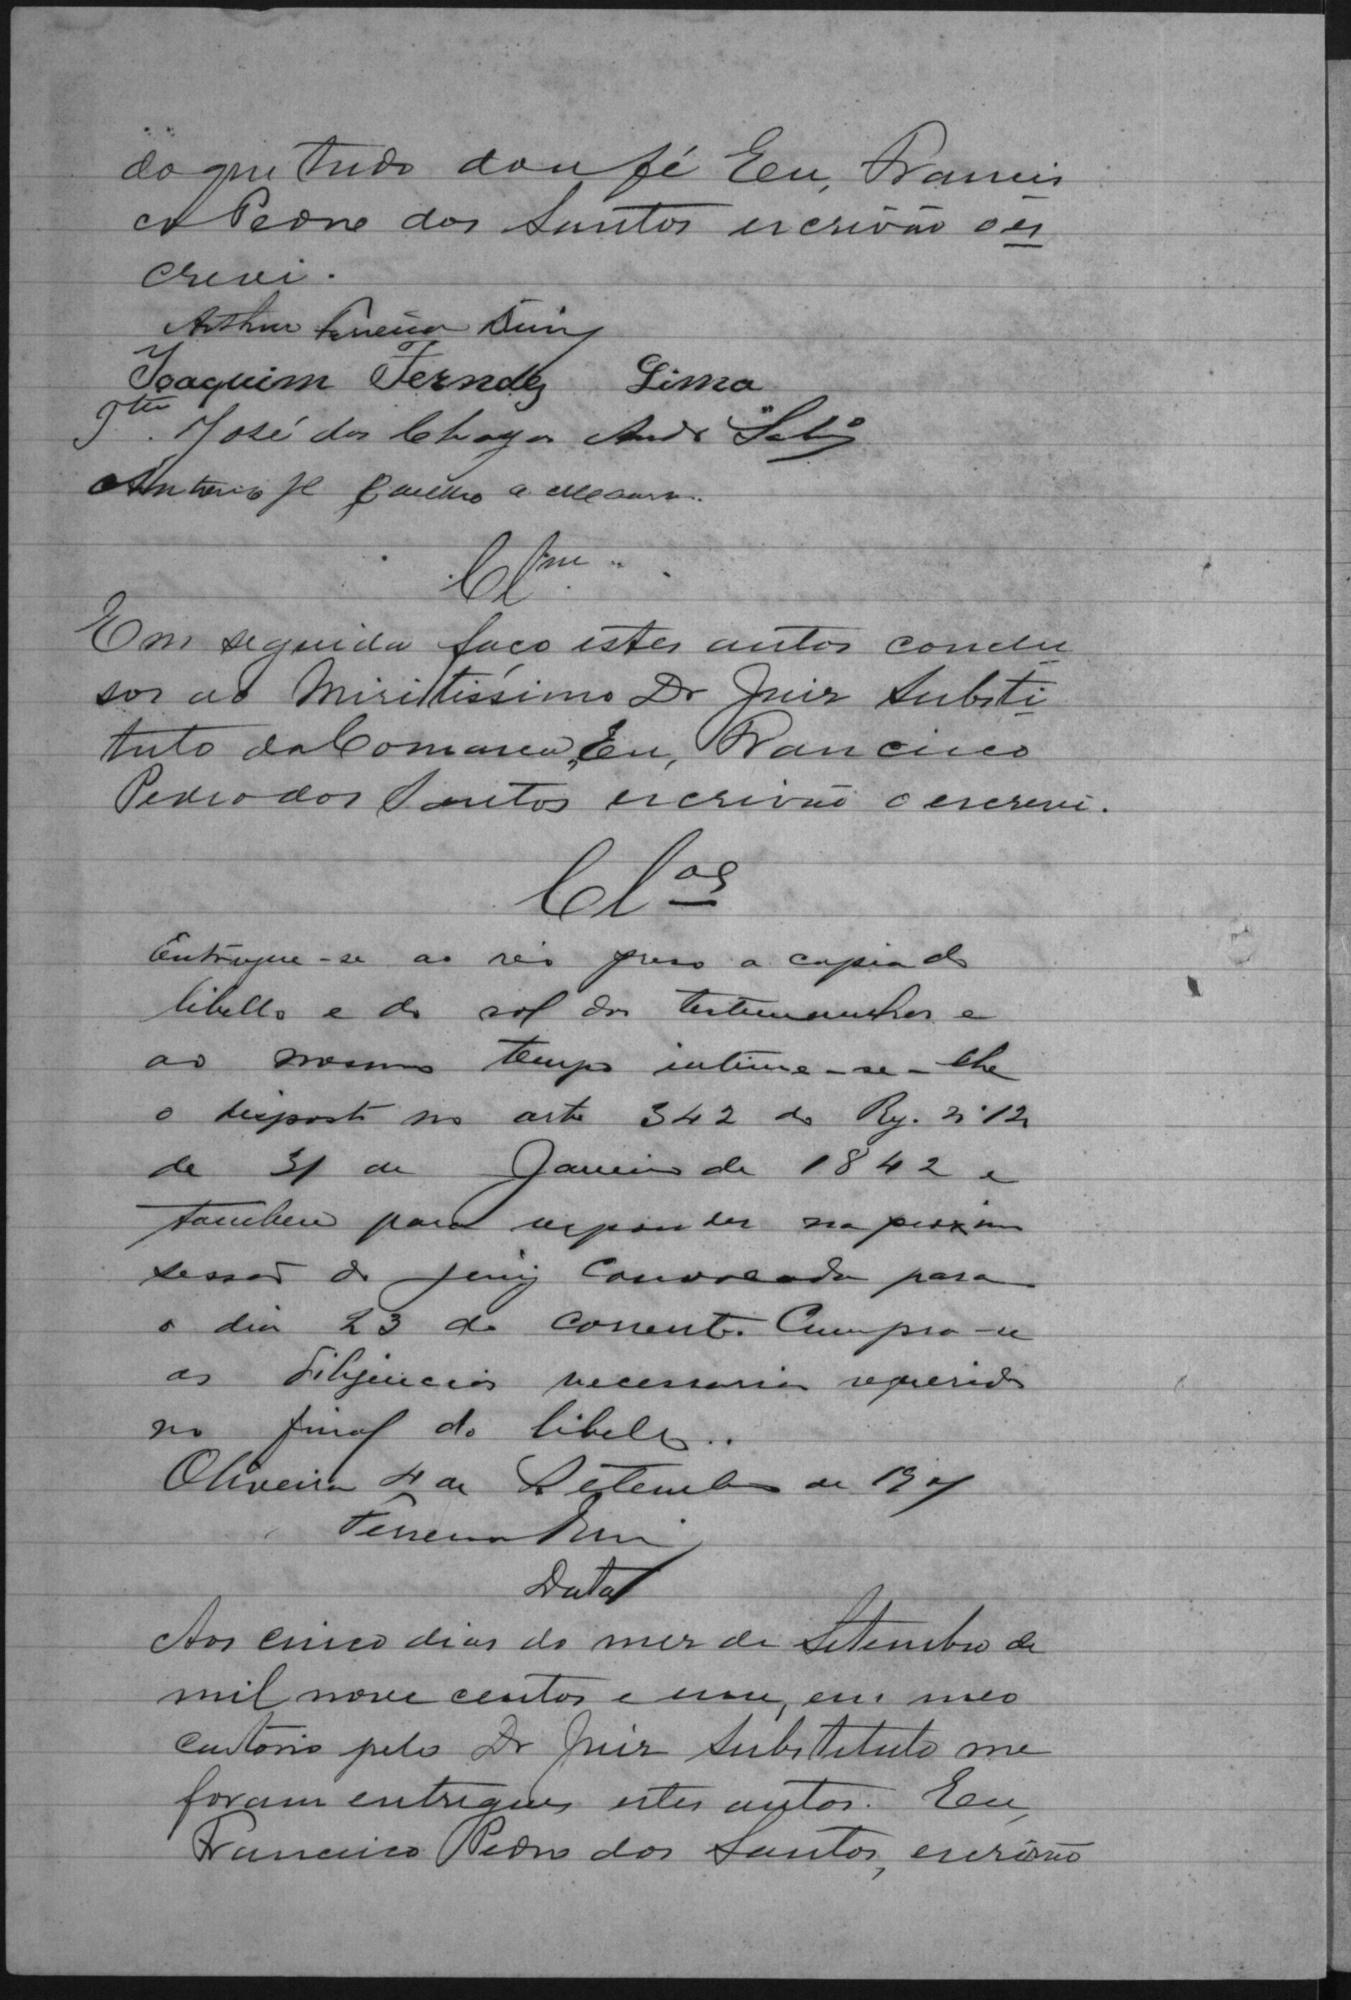 do que tudo dou fé Eu, Francis
co Pedro dos Santos escrivão o es
crevi.
Arthur Ferreira Diniz
Joaquim Fernds Lima
José das Chagas Andr
Antonio
Clm
Em seguida faço estes autos conclu
sos ao Miritissimo Dr Juiz Substi
tuto da Comarca, Eu, Francisco
Pedro dos Santos escrivão o escrevi.
Clos
Entregue-se ao réo preso a copia do
libello e do rol das testemunhas e
ao mesmo tempo intime-se-lhe
o disposto no arto 342 do Reg. nº 120
de 31 de Janeiro de 1842 e
tambem para responder na proxima
sessão do jury convocada para
o dia 23 do corrente. Cumpra-se
as diligencias necessarias requeridas
no final do libello..
Oliveira 4 de Setembro de 1901
Ferreira Diniz
Data
Aos cinco dias do mez de Setembro de
mil nove centos e um, em meo
cartorio pelo Dr Juiz Substituto me
foram entregues estes autos. Eu,
Francisco Pedro dos Santos, escrivão